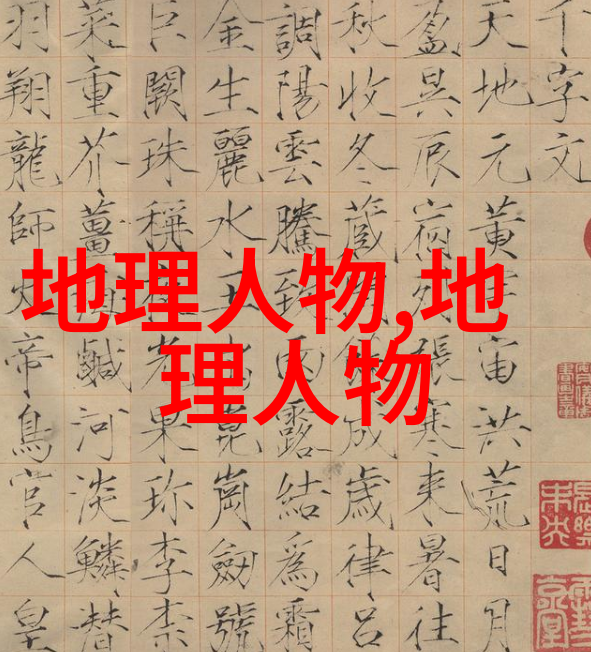 千字文
天地元黄宇宙洪荒日月
盈昃辰宿列張寒来暑往
秋收冬蔵閏餘成歳律呂
調陽雲騰致雨露結為霜
金生麗水玉出崑崗劒號
巨闕珠稱夜光果珍李柰
菜重芥薑海鹹河淡鱗潛
羽翔龍師火帝鳥官人皇
地理人物,地
理人物